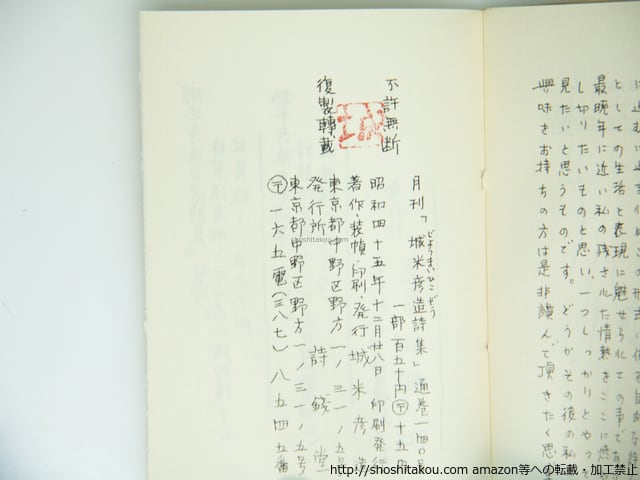 に
としての生活と表現に魅せられての事であ
最晩年に近い私の残された情熱をここに燃
し切りたいものと思い、一つしっかりとやって
見たいと思うものです。どうかその後の私
興味をお持ちの方は是非讀んで頂きたく思
不許無断
復製轉載
月刊「城米彦造詩集」通巻一四〇号
じょうまいひこぞう
一部 百五十円 〒十五
昭和四十五年十二月廿八日 印刷発行
著作・装幀・印刷・発行 城米彦造
東京都中野区野方一ノ三一ノ五号
発行所 詩餞堂
東京都中野区野方一ノ三一ノ五号
〒一六五 電(三八七)八五四五番
shoshitakou.com
http://shoshitakou.com amazon等への転載・加工禁止